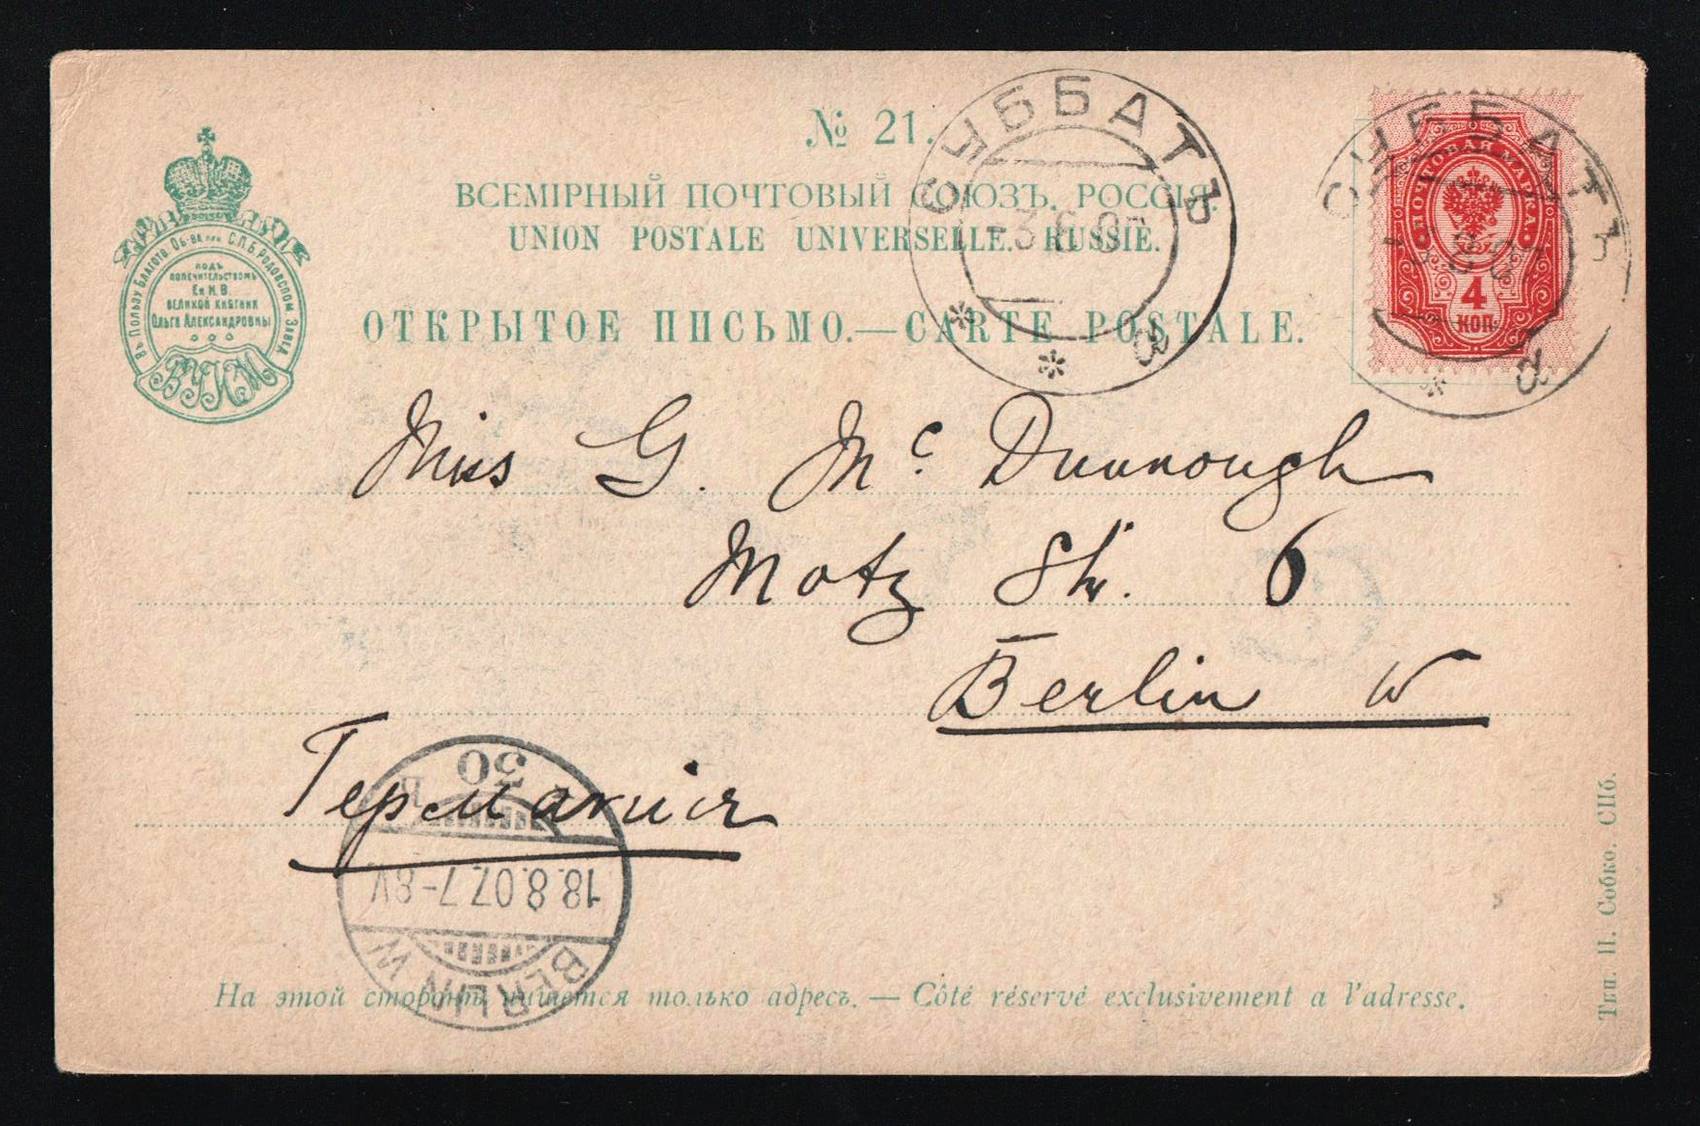 № 21.
ВСЕМІРНЫЙ ПОЧТОВЫЙ СОЮЗЪ. РОССІЯ.
UNION POSTALE UNIVERSELLE. RUSSIE.
ОТКРЫТОЕ ПИСЬМО.—CARTE POSTALE.
Въ Пользу Благотв. Об-ва при С.П.Б. Родовспом. Завед.
подъ
попечительствомъ
Ея И. В.
великой княгини
Ольги Александровны
СУББАТЪ
а
СУББАТЪ
а
ПОЧТОВАЯ МАРКА
4
КОП.
Miss G. Mc Dunnough
Motz Str. 6
Berlin W
Германия
BERLIN W
18.8.07. 7-8V
30
На этой сторонѣ пишется только адресъ. — Côté réservé exclusivement a l'adresse.
Тип. П. Собко. СПб.